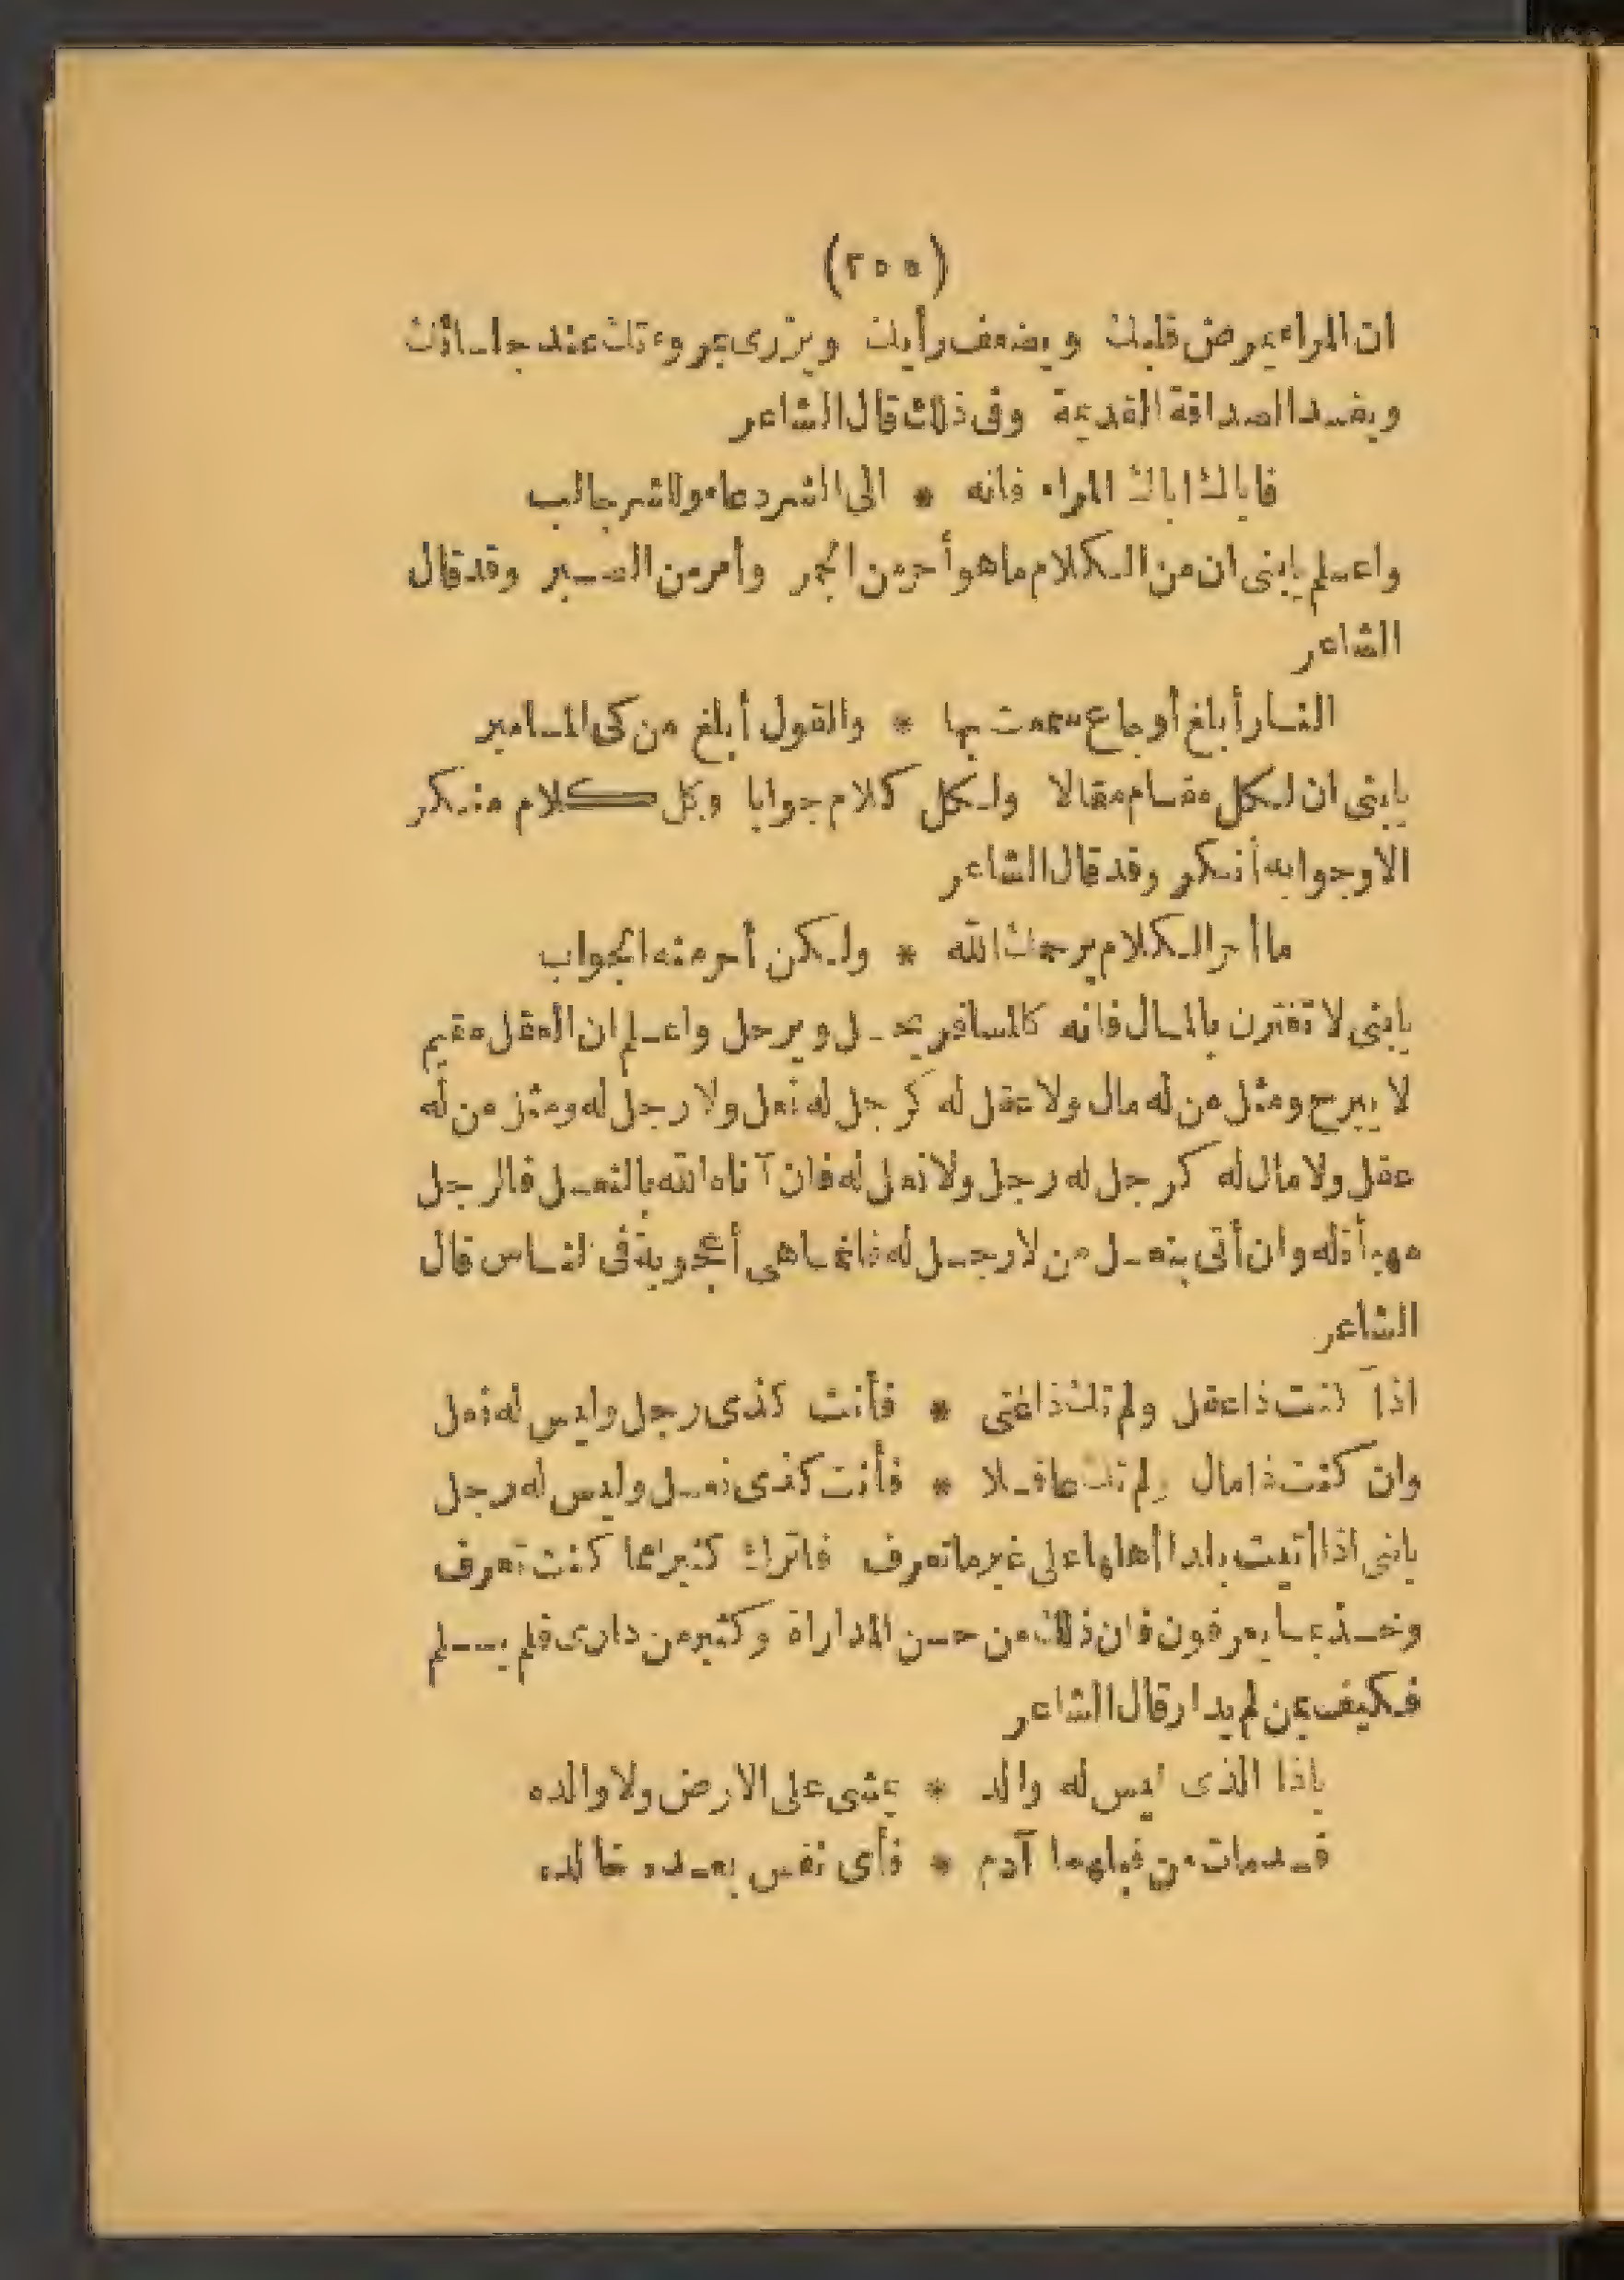 (٢٥٥)
ان المراء يمرض قلبك ويضعف رأيك ويزرى بمروءتك عند جلسائك
ويفسد الصداقة القديمة وفى ذلك قال الشاعر
فاياك اياك المراء فانه * الى الشر دعاء وللشر جالب
واعلم يابنى ان من الكلام ما هو أحر من الجمر وأمر من الصبر وقد قال
الشاعر
النار أبلغ أوجاع سمعت بها * والقول أبلغ من كى المسامير
يابنى ان لكل مقام مقالا ولكل كلام جوابا وكل كلام منكر
الا وجوابه أنكر وقد قال الشاعر
ما أحر الكلام يرحمك الله * ولكن أحر منه الجواب
يابنى لا تفترن بالمال فانه كالمسافر يحل ويرحل واعلم ان العقل مقيم
لا يبرح ومثل من له مال ولا عقل له كرجل له نعل ولا رجل له ومثل من له
عقل ولا مال له كرجل له رجل ولا نعل له فان آتاه الله بالنعل فالرجل
مهيأة له وان أتى بنعل من لا رجل له فانما هى أعجوبة فى الناس قال
الشاعر
اذا كنت ذا عقل ولم تك ذا غنى * فأنت كذى رجل وليس له نعل
وان كنت ذا مال ولم تك عاقلا * فأنت كذى نعل وليس له رجل
يابنى اذا أتيت بلدا أهلها على غير ما تعرف فاترك كثيرا مما كنت تعرف
وخذ بما يعرفون فان ذلك من حسن المداراة وكثير من دارى فلم يسلم
فكيف بمن لم يدار قال الشاعر
ياذا الذى ليس له والد * يمشى على الارض ولا والده
قد مات من قبلهما آدم * فأى نفس بعده خالده